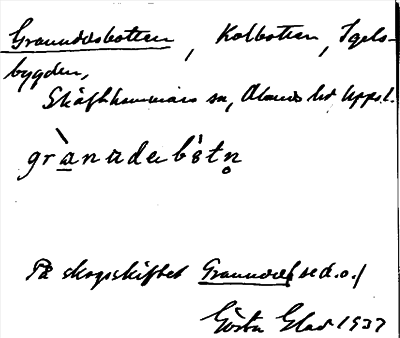 Granudebotten, Kolbotten, Igels-
bygden,
Skäfthammars sn, Olands hd Uppl.
grànadebòtn̥
På skogsskiftet Granude (se d.o.)
Gösta Glad 1937